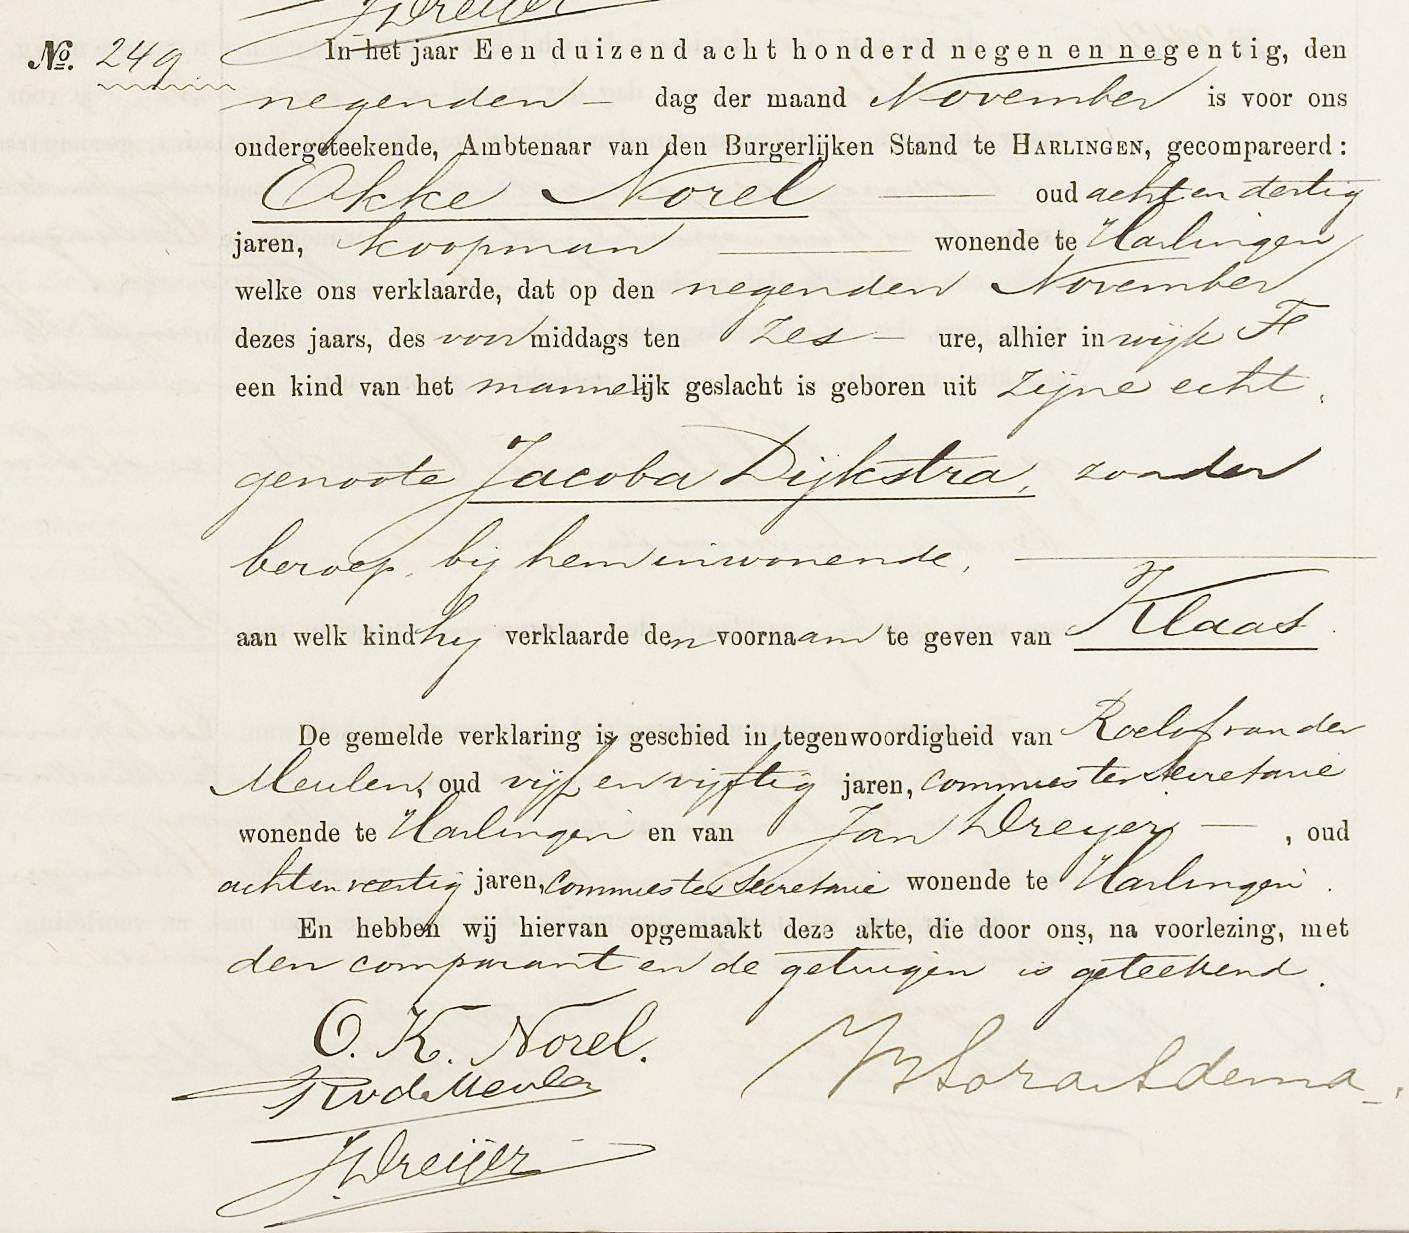 JDreijer
No. 249. In het jaar Een duizend acht honderd negen en negentig, den
negenden — dag der maand November is voor ons
ondergeteekende, Ambtenaar van den Burgerlijken Stand te HARLINGEN, gecompareerd:
Okke Norel — oud acht en dertig
jaren, koopman — wonende te Harlingen
welke ons verklaarde, dat op den negenden November
dezes jaars, des voormiddags ten zes — ure, alhier in wijk F
een kind van het mannelijk geslacht is geboren uit zijne echt
genoote Jacoba Dijkstra, zonder
beroep, bij hem inwonende, —
aan welk kind hij verklaarde den voornaam te geven van Klaas.
De gemelde verklaring is geschied in tegenwoordigheid van Roelof van der
Meulen, oud vijf en vijftig jaren, commies ter secretarie
wonende te Harlingen en van Jan Dreijer —, oud
acht en veertig jaren, commies ter secretarie wonende te Harlingen.
En hebben wij hiervan opgemaakt deze akte, die door ons, na voorlezing, met
den comparant en de getuigen is geteekend.
O. K. Norel.
RvdMeulen
JDreijer